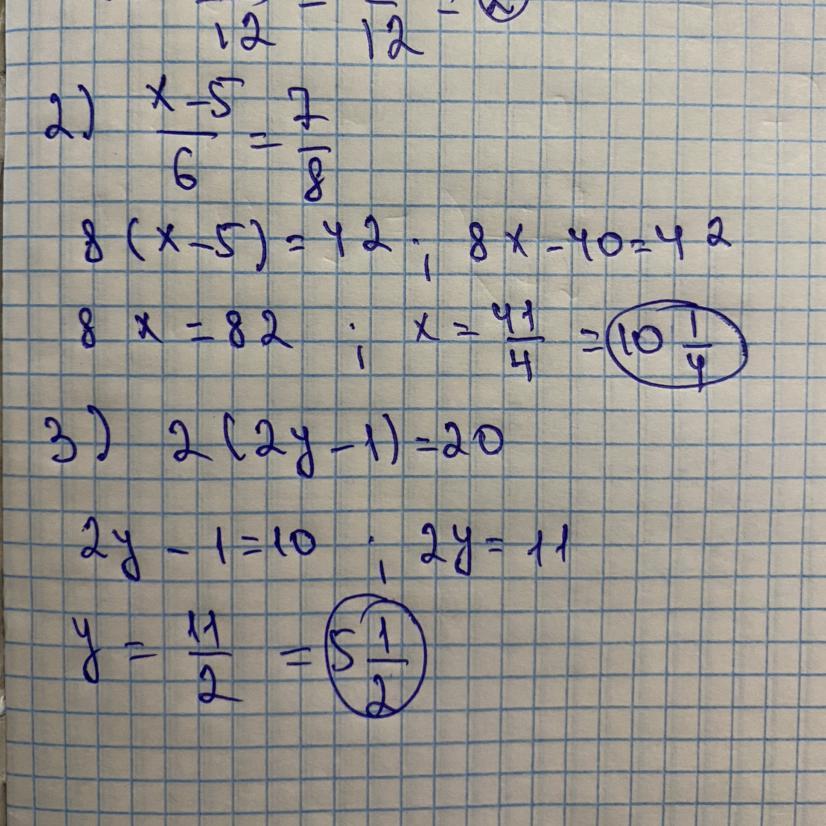 12 - 12 = 2
2) x-5/6 = 7/8
8(x-5)=42 ; 8x-40=42
8x=82 ; x=41/4 =10 1/4
3) 2(2y-1)=20
2y-1=10 ; 2y=11
y = 11/2 = 5 1/2